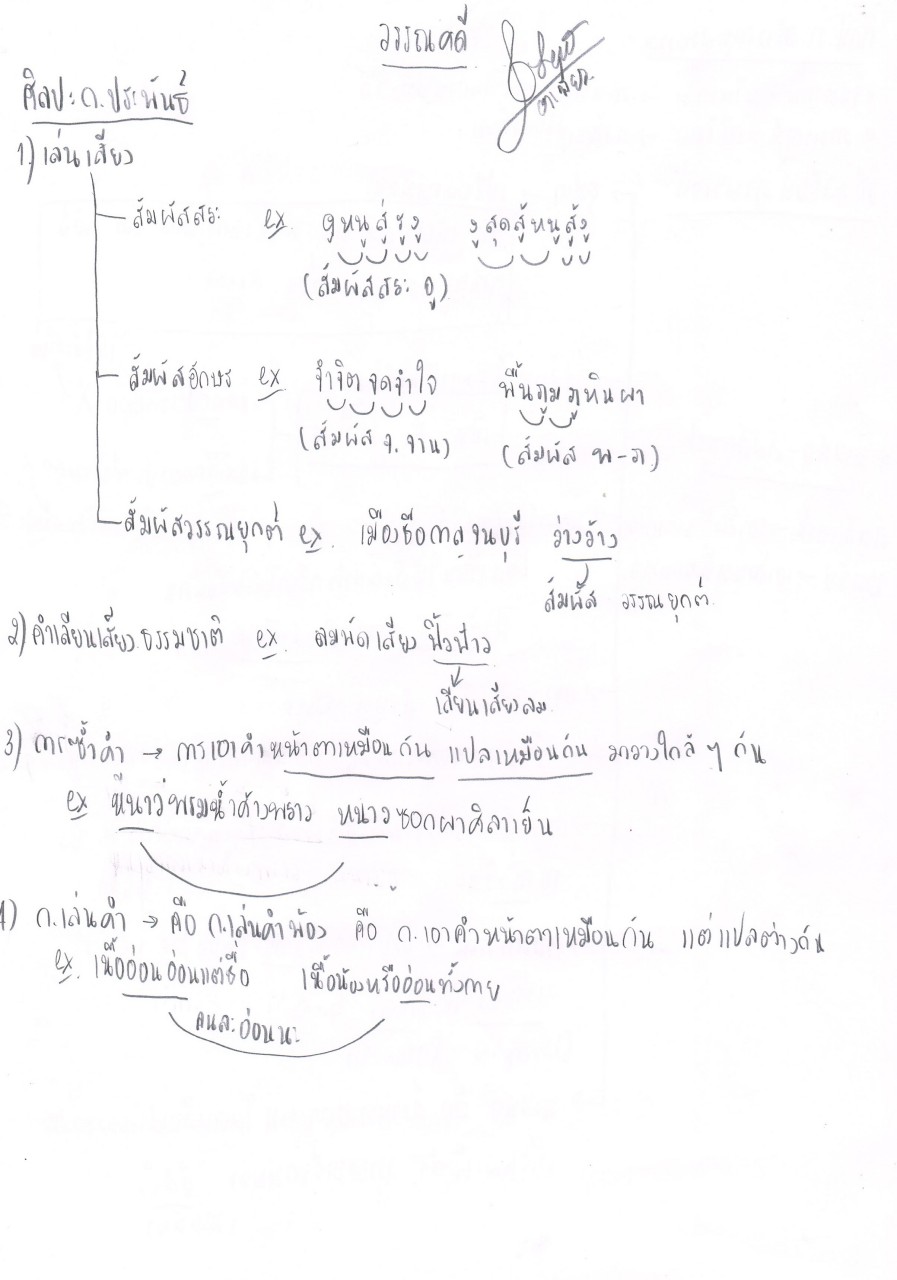 วรรณคดี
ศิลปะก.ประพันธ์
1) เล่นเสียง
สัมผัสสระ ex ดูหนูสู่รูงู งูสุดสู้หนูสู้งู
(สัมผัสสระ อู)
สัมผัสอักษร ex จำจิตจดจำใจ พื้นภูมภูหินผา
(สัมผัส จ.จาน) (สัมผัส พ-ภ)
สัมผัสวรรณยุกต์ ex เมืองชื่อกาญจนบุรี ว่างว้าง
สัมผัส วรรณยุกต์
2) คำเลียนเสียงธรรมชาติ ex ลมพัดเสียง ฟิ้วฟ้าว
เลียนเสียงลม
3) การซ้ำคำ → การเอาคำหน้าตาเหมือนกัน แปลเหมือนกัน มาวางใกล้ๆ กัน
ex พรมน้ำค้างพราว หนาวซอกผาศิลาเย็น
4) ก.เล่นคำ → คือ ก.เล่นคำพ้อง คือ ก.เอาคำหน้าตาเหมือนกัน แต่แปลต่างกัน
ex เนื้ออ่อนอ่อนแต่ชื่อ เนื้อน้องหรืออ่อนทั้งกาย
คนละอ่อนนะ